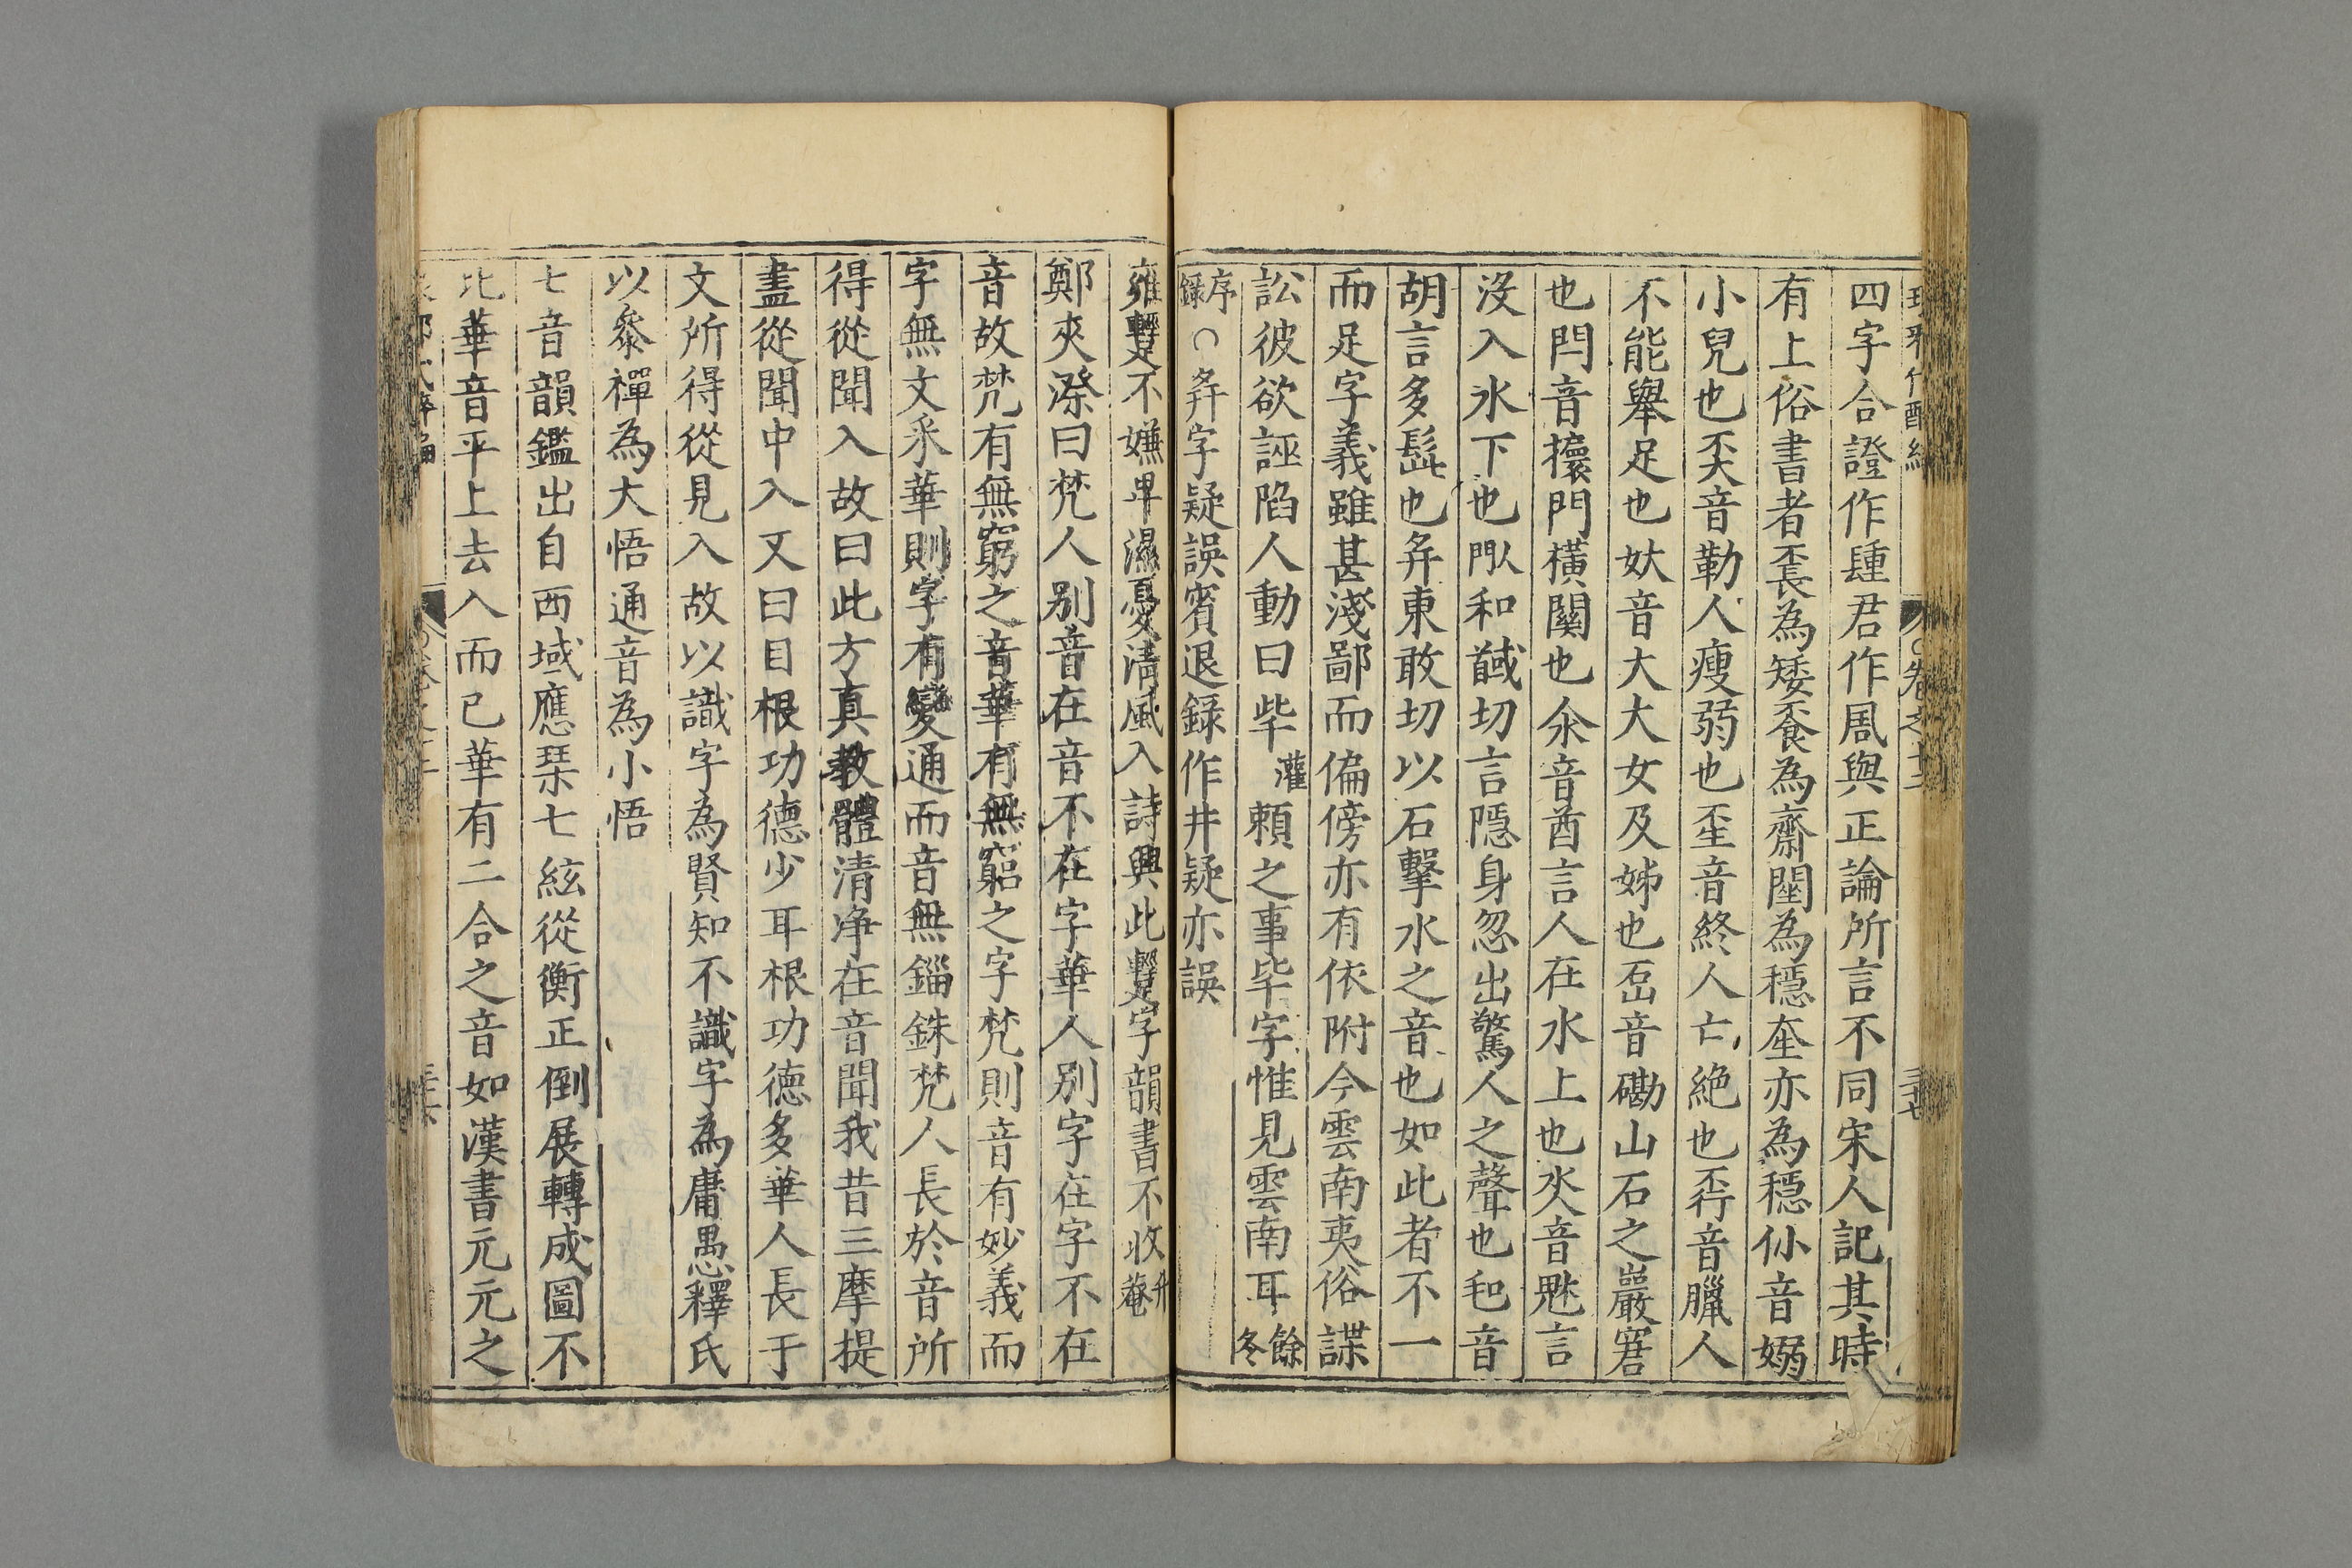 四字合證作𨽾君作周與正論所言不同宋人記其時
有上俗書者𡘜為矮𩚵為齋𨳯為穩𡘭亦為穩仦音嫋
小兒也奀音勒人瘦弱也𡘇音終人亡絕也𡘫音臘人
不能舉足也㚻音大大女及姊也岊音磡山石之巖窟
也閂音攌門橫關也氽音酋言人在水上也氼音魅言
沒入水下也䦘和馘切言隱身忽出驚人之聲也毝音
胡言多髭也𢍏東敢切以石擊水之音也如此者不一
而足字義雖甚淺鄙而偏傍亦有依附今雲南夷俗諜
訟彼欲誣陷人動曰毕灌賴之事毕字惟見雲南耳餘冬
序録〇𢍏字疑誤賓退録作井疑亦誤
雍躄不嫌卑濕憂清風入詩興此躄字韻書不收升菴
鄭夾漈曰梵人别音在音不在字華人别字在字不在
音故梵有無窮之音華有無窮之字梵則音有妙義而
字無文釆華則字有變通而音無錙銖梵人長於音所
得從聞入故曰此方真教體清净在音聞我昔三摩提
盡從聞中入又曰目根功德少耳根功德多華人長于
文所得從見入故以識字為賢知不識字為庸愚釋氏
以叅禪為大悟通音為小悟
七音韻鑑出自西域應琹七絃從衡正倒展轉成圖不
比華音平上去入而已華有二合之音如漢書元元之